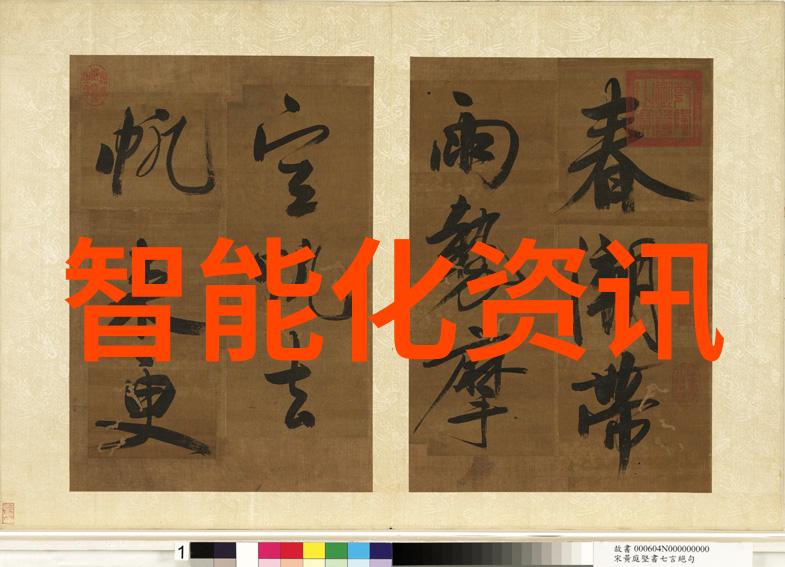 春潮帶
雨摩
空帆去
帆來更
智能化资讯
1
故書 000604N000000000
宋黃庭堅書七言絕句